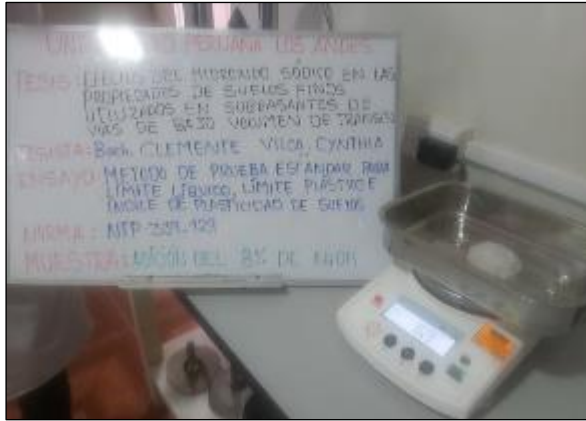 UNIVERSIDAD PERUANA LOS ANDES
TESIS: EFECTOS DEL HIDROXIDO SÓDICO EN LAS
PROPIEDADES DE SUELOS FINOS
UTILIZADOS EN SUBRASANTES DE
VIAS DE BAJO VOLUMEN DE TRANSITO
TESISTA: Bach. CLEMENTE VILCA, CYNTHIA
ENSAYO: METODO DE PRUEBA ESTANDAR PARA
LIMITE LÍQUIDO, LÍMITE PLASTICO E
INDICE DE PLASTICIDAD DE SUELOS
NORMA: NTP 339.129
MUESTRA: ADICION DEL 8% DE NAOH